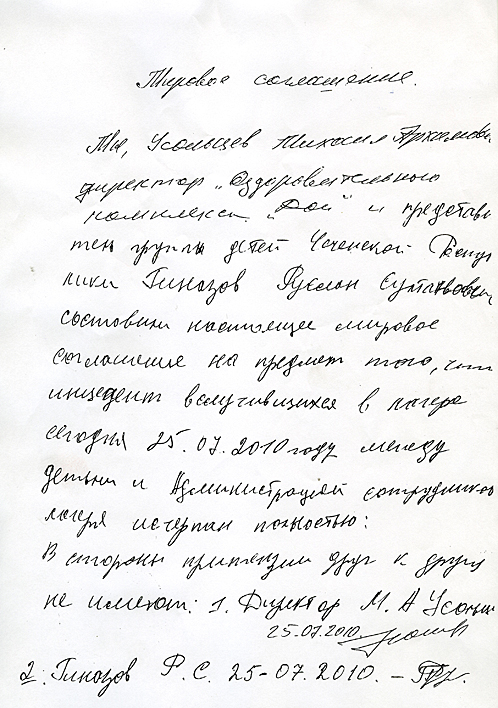 Мировое соглашение.
Мы, Усольцев Михаил
директор „Оздоровительного
комплекса „Дон" и представи
тель группы детей Чеченской Респуб
лики Гиназов Руслан Султанович
составили настоящее мировое
соглашение на предмет того, что
инцедент вслучившихся в лагере
сегодня 25.07.2010 году между
детьми и Администрацией сотрудников
лагеря исчерпан полностью:
В стороны притензии друг к другу
не имеют: 1. Директор М. А Усольц
25.07.2010
2: Гиназов Р. С. 25-07. 2010. –